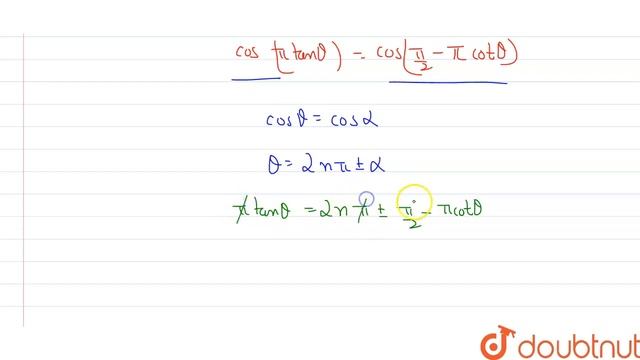 cos(π tanθ) = cos(π/2 - π cotθ)
cosθ = cosα
θ = 2nπ ± α
π tanθ = 2nπ ± π/2 - πcotθ
doubtnut